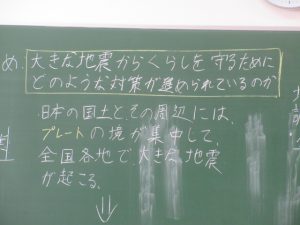 め. 大きな地震からくらしを守るために
どのような対策が進められているのか
日本の国土と、その周辺には、
プレートの境が集中して、
全国各地で、大きな地震
が起こる。